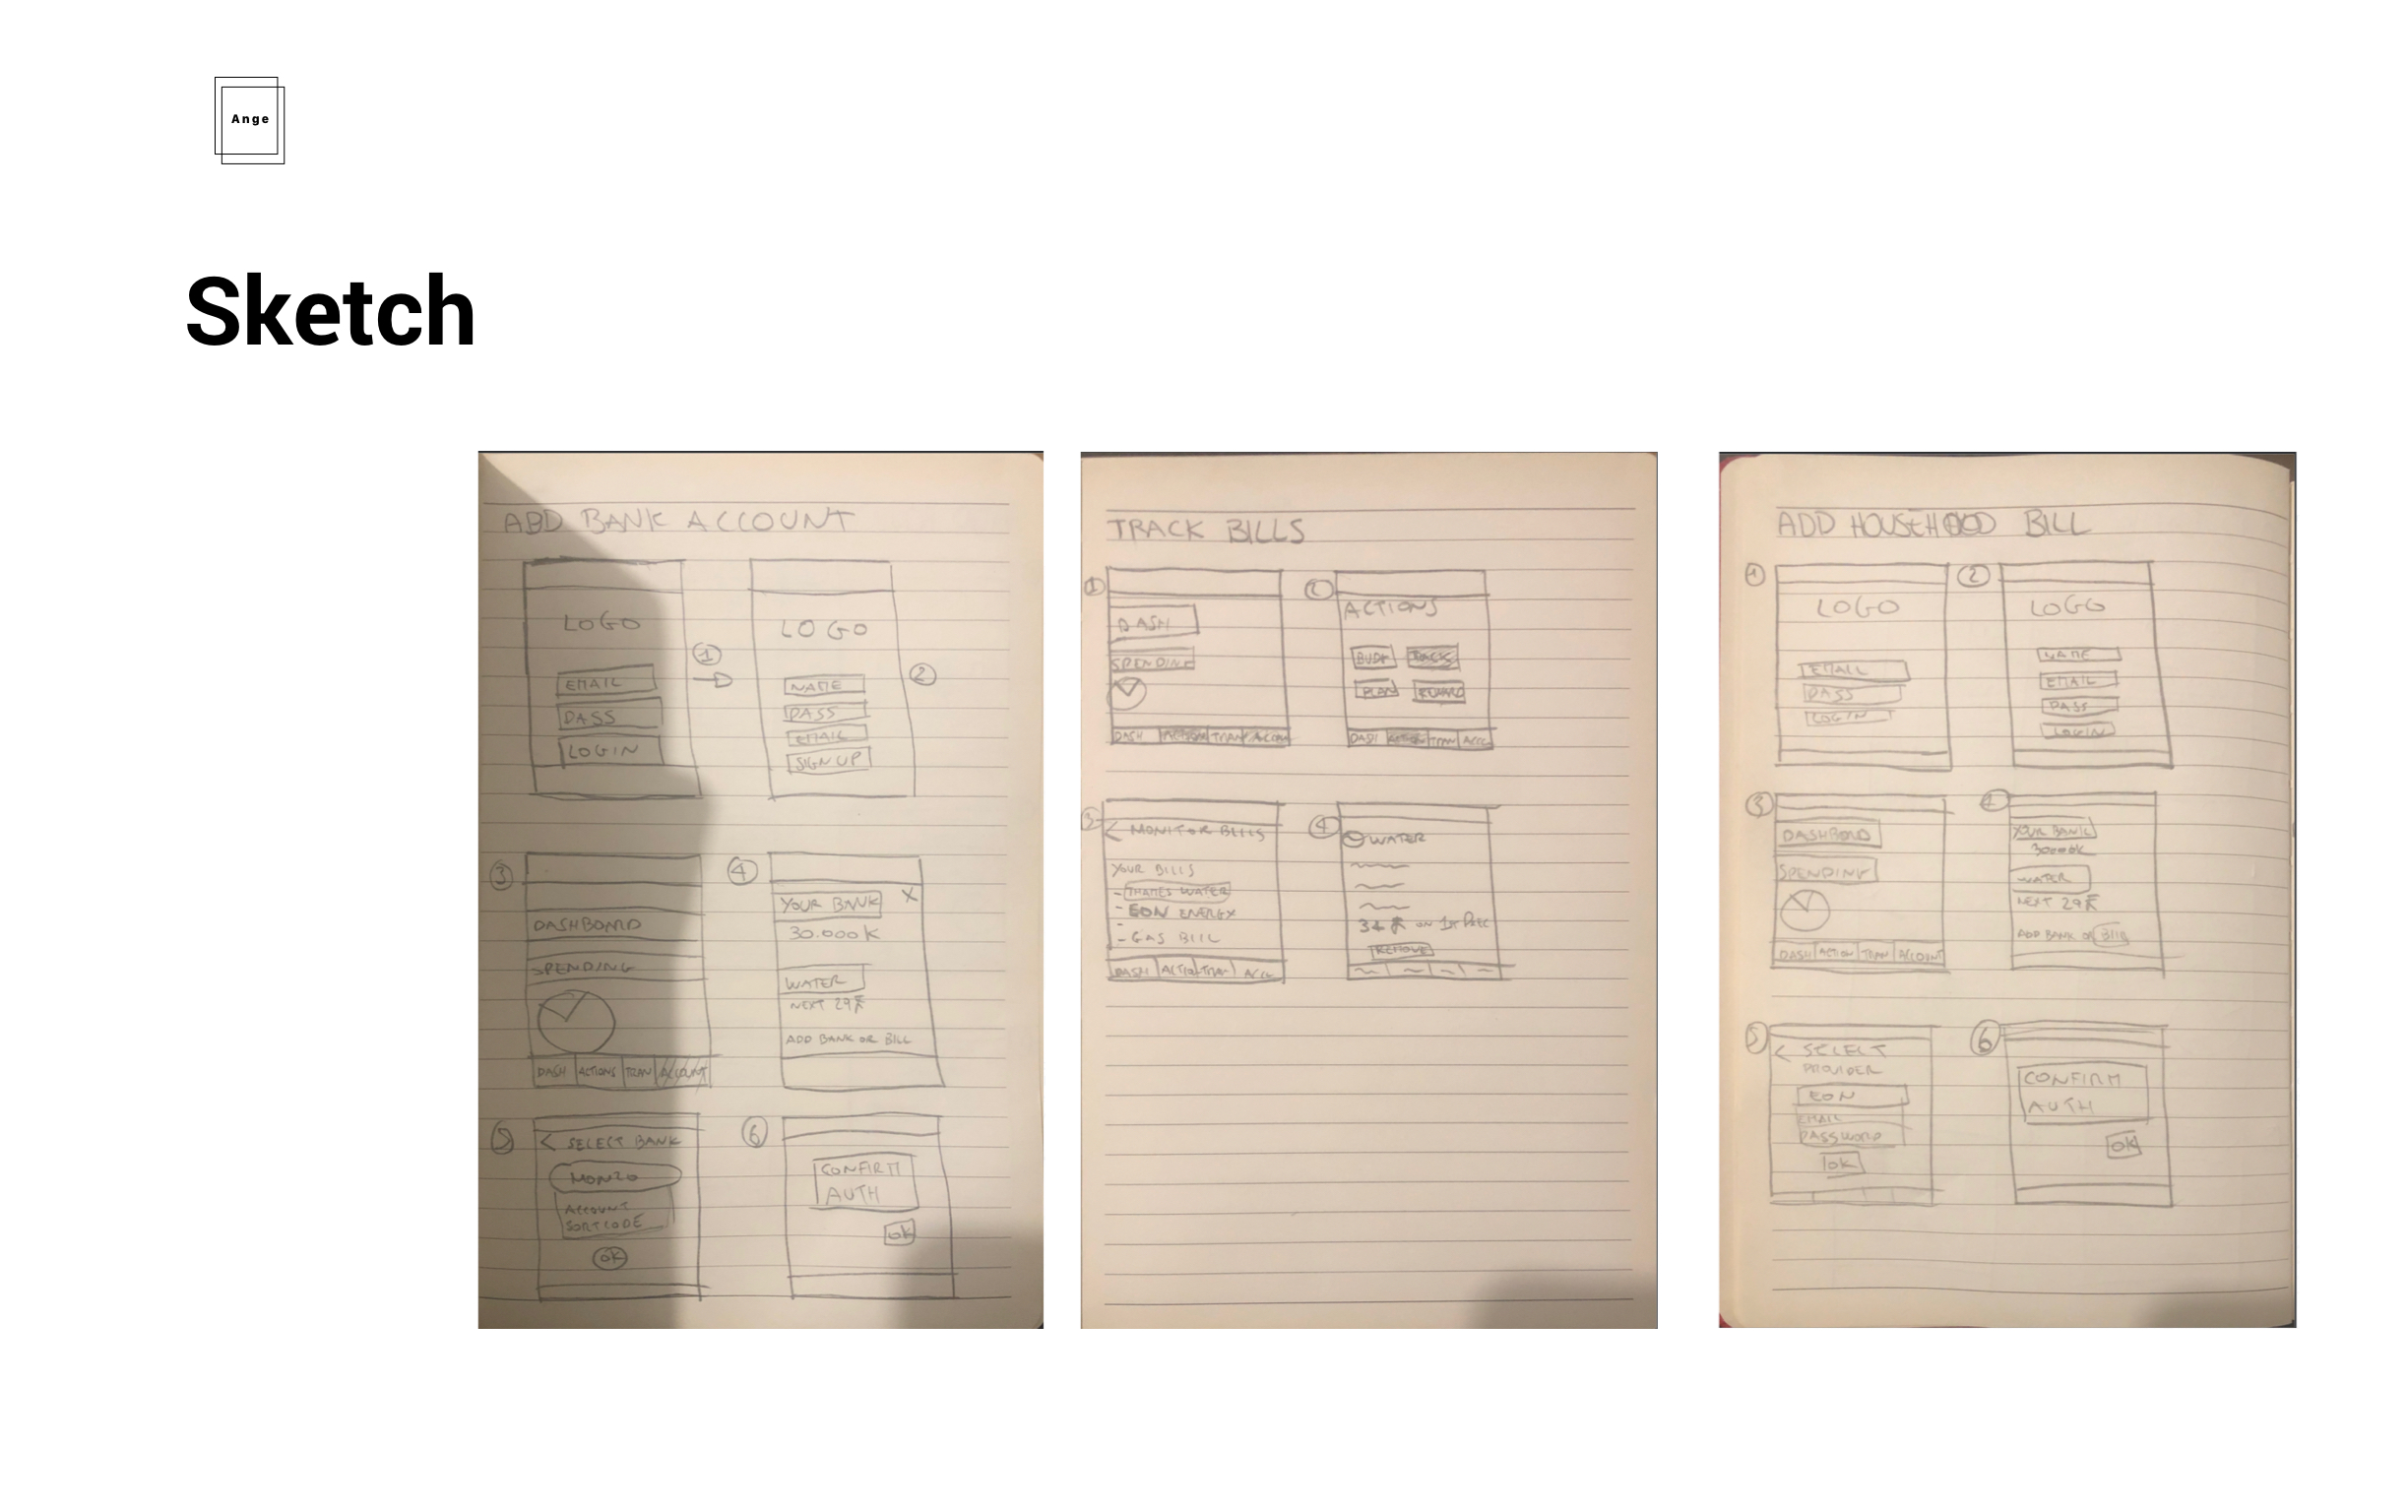 Ange
Sketch
ADD BANK ACCOUNT
1
LOGO
EMAIL
PASS
LOGIN
2
LOGO
NAME
PASS
EMAIL
SIGN UP
3
DASHBOARD
SPENDING
DASH ACTIONS TRAN ACCOUNT
4
YOUR BANK X
30.000K
WATER
NEXT 29
ADD BANK OR BILL
5
< SELECT BANK
MONZO
ACCOUNT
SORTCODE
OK
6
CONFIRM
AUTH
OK
TRACK BILLS
1
DASH
SPENDING
DASH TRAN
2
ACTIONS
BUDG
PLAN
TRAN ACCC
3
< MONITOR BILLS
YOUR BILLS
- THAMES WATER
- EON ENERGY
- GAS BILL
DASH ACTIO TRAN ACCC
4
WATER
34 on 1st Dec
REMOVE
ADD HOUSEHOOD BILL
1
LOGO
EMAIL
PASS
LOGIN
2
LOGO
NAME
EMAIL
PASS
LOGIN
3
DASHBORD
SPENDING
DASH ACTION TRAN ACCOUNT
4
YOUR BANK
30000K
WATER
NEXT 29
ADD BANK OR BILL
5
< SELECT
PROVIDER
EON
EMAIL
PASSWORD
OK
6
CONFIRM
AUTH
OK